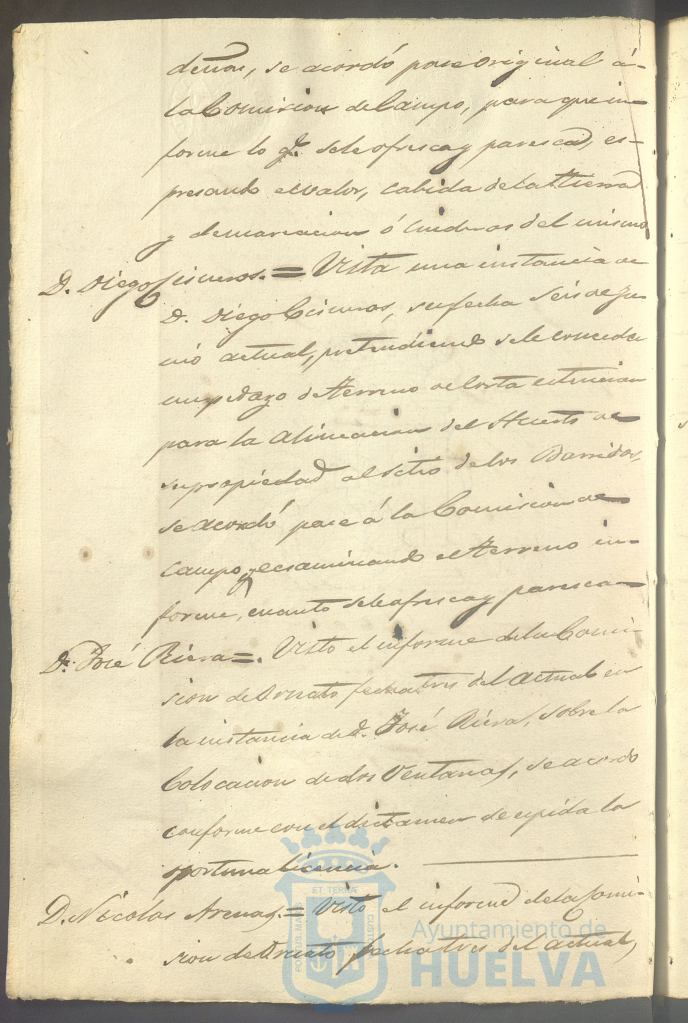 denas, se acordó pase original á
la Comision de Campo, para que in-
forme lo qe. sele ofresca y paresca, es-
presando el valor, cabida de la tierra
y demarcacion ó linderos del mismo
D. Diego Cisneros. = Vista una instancia de
D. Diego Cisneros, su fecha seis de Ju-
nio actual, pretendiendo sele conceda
un pedazo de terreno de corta estencion
para la alineacion del Huerto de
su propiedad al sitio de los Barridos,
se acordó pase á la Comision de
campo y ecsaminando el terreno in-
forme, cuanto sele ofresca y paresca
Dn. José Riera =. Visto el informe de la Comi-
sion de Ornato fecha tres del actual en
la instancia de D. José Riera, sobre la
Colocacion de dos Ventanas, se acordo
conforme con el dictamen se espida la
oportuna licencia.
D. Nicolas Arenas. = Visto el informe de la Comi-
sion de Ornato fecha tres del actual,
ET TERRÆ
PORTUS MARIS
CUSTODIA
Ayuntamiento de
HUELVA